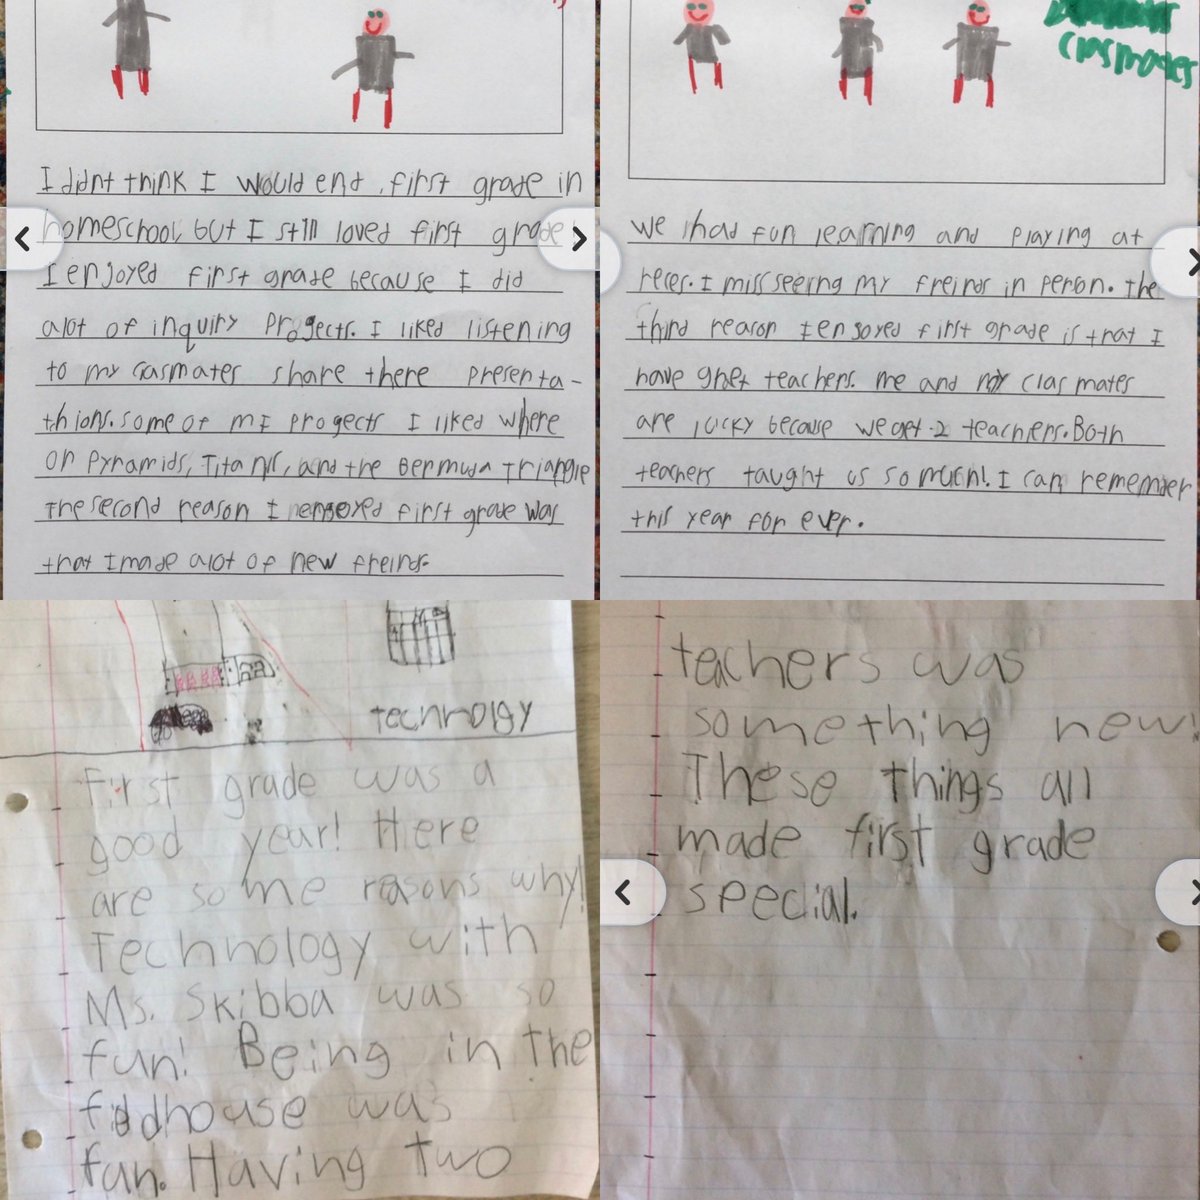 I didnt think I would end first grade in
homeschool, but I still loved first grade
I enjoyed first grade because I did
alot of inquiry progects. I liked listening
to my clasmates share there presenta-
thions. some of mI progects I liked where
on pyramids, Titanic, and the Bermuda Triangle
The second reason I enjoyed first grade was
that I made alot of new freinds.
clasmates
We had fun learning and playing at
reces. I miss seeing my freinds in person. The
third reason I enjoyed first grade is that I
have gret teachers. me and my clasmates
are lucky because we get 2 teachers. Both
teachers taught us so much! I can remember
this year for ever.
technolgy
First grade was a
good year! Here
are some reasons why!
Technology with
Ms. Skibba was so
fun! Being in the
fieldhouse was
fun. Having two
teachers was
something new!
These things all
made first grade
special.